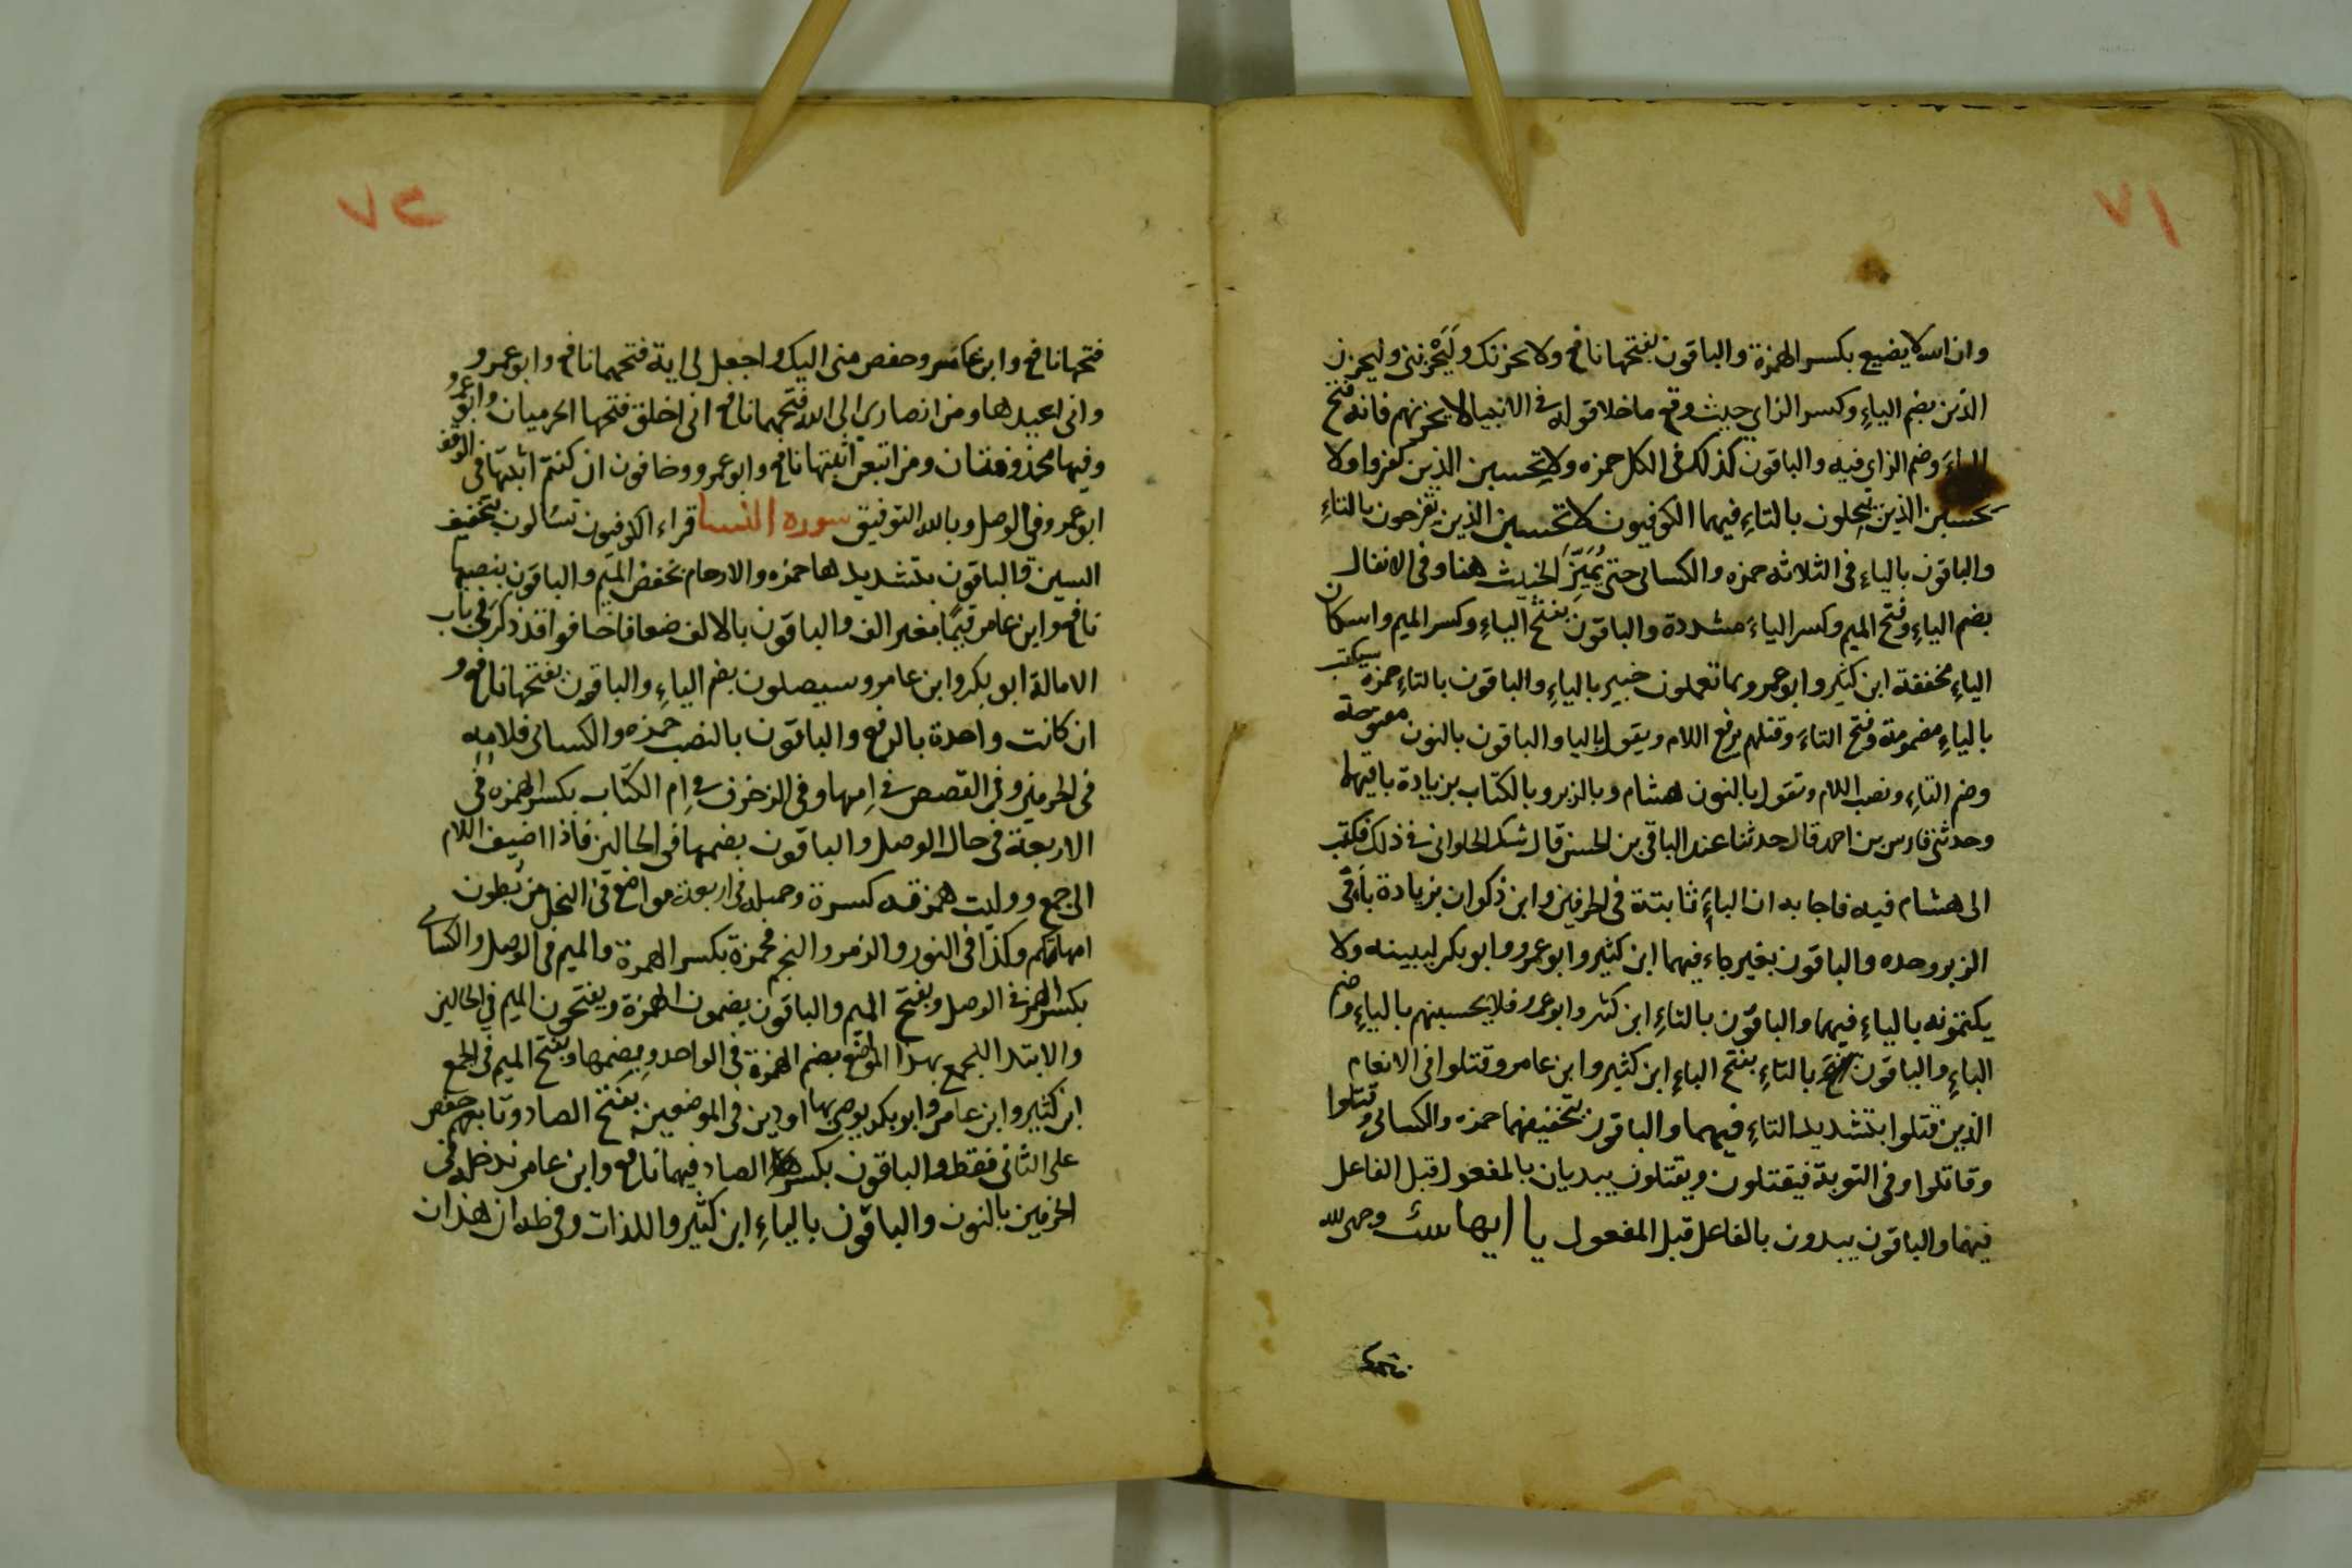 ٧١
وان الله لا يضيع بكسر الهمزة والباقون بفتحها نافع ولا يحزنك ولَيَحْزنني وليحزن
الذين بضم الياءِ وكسر الزاي حيث وقع ما خلا قوله في الانبيا لا يحزنهم فانه فتح
الياءَ وضم الزاي فيه والباقون كذلك في الكل حمزه ولا تحسبن الذين كفروا ولا
تحسبن الذين يبخلون بالتاءِ فيهما الكوفيون لا تحسبن الذين يفرحون بالتاءِ
والباقون بالياءِ في الثلاثه حمزه والكسائي حتى يُمَيِّزَ الخبيث هنا وفي الانفال
بضم الياءِ وفتح الميم وكسر الياءَ مشددة والباقون بفتح الياءِ وكسر الميم واسكان
الياءِ مخففة ابن كثير وابو عمرو بما تعملون خبير بالياءِ والباقون بالتاءِ حمزه سيكتب
بالياءِ مضمومة وفتح التاءَ وقتلهم برفع اللام ويقول باليا والباقون بالنون مفتوحة
وضم التاءِ ونصب اللام ونقول بالنون هشام وبالزبر وبالكتاب بزيادة با فيهما
وحدثني فارس بن احمد قال حدثنا عبد الباقي بن الحسن قال شك الحلواني في ذلك فكتب
الى هشام فيه فاجابه ان الباءَ ثابتة في الحرفين وابن ذكوان بزيادة باءٍ في
الزبر وحده والباقون بغير باء فيهما ابن كثير وابو عمرو وابو بكر ليبيننه ولا
يكتمونه بالياءِ فيهما والباقون بالتاءِ ابن كثير وابو عمرو فلا يحسبنهم بالياءِ وضم
الباءِ والباقون بالتاءِ بفتح الباءِ ابن كثير وابن عامر وقتلوا في الانعام
الذين قتلوا بتشديد التاءِ فيهما والباقون بتخفيفهما حمزه والكسائي وقتلوا
وقاتلوا وفي التوبة فيقتلون ويقتلون يبديان بالمفعول قبل الفاعل
فيهما والباقون يبدون بالفاعل قبل المفعول يا ايها ست وجهي لله
فتحها
٧٢
فتحها نافع وابن عامر وحفص مني اليك واجعل لي اية فتحهما نافع وابو عمرو
واني اعيدها ومن انصاري الى الله فتحهما نافع اني اخلق فتحها الحرميان وابو عمرو
وفيها محذوفتان ومن اتبعن اثبتها نافع وابو عمرو وخافون ان كنتم اثبتها في الوقف
ابو عمرو في الوصل وبالله التوفيق سوره النسا قراء الكوفيون تسالون بتخفيف
السين والباقون بتشديدها حمزه والارحام بخفض الميم والباقون بنصبها
نافع وابن عامر قيمًا بغير الف والباقون بالالف ضعافا خافوا قد ذكر في باب
الامالة ابو بكر وابن عامر وسيصلون بضم الياءِ والباقون بفتحها نافع و
ان كانت واحدة بالرفع والباقون بالنصب حمزه والكسائي فلامه
في الحرفين وفي القصص في امها وفي الزخرف في ام الكتاب بكسر الهمزه في
الاربعة في حال الوصل والباقون بضمها في الحالين فاذا اضيف اللام
الى جمع ووليت همزته كسرة وجمله في اربعة مواضع في النحل من بطون
امهاتكم وكذا في النور والزمر والنجم فحمزة بكسر الهمزة والميم في الوصل والكسائي
بكسر الهمز في الوصل وبفتح الميم والباقون يضمون الهمزة ويفتحون الميم في الحالين
والابتدا للجمع بهذا المواضع بضم الهمزة في الواحد وبضمها وبفتح الميم في الجمع
ابن كثير وابن عامر وابو بكر يوصى بها اودين في الموضعين بفتح الصاد وتابعهم حفص
على الثاني فقط والباقون بكسر الصاد فيهما نافع وابن عامر ندخله في
الحرفين بالنون والباقون بالياءِ ابن كثير واللذان وفي طه ان هذان